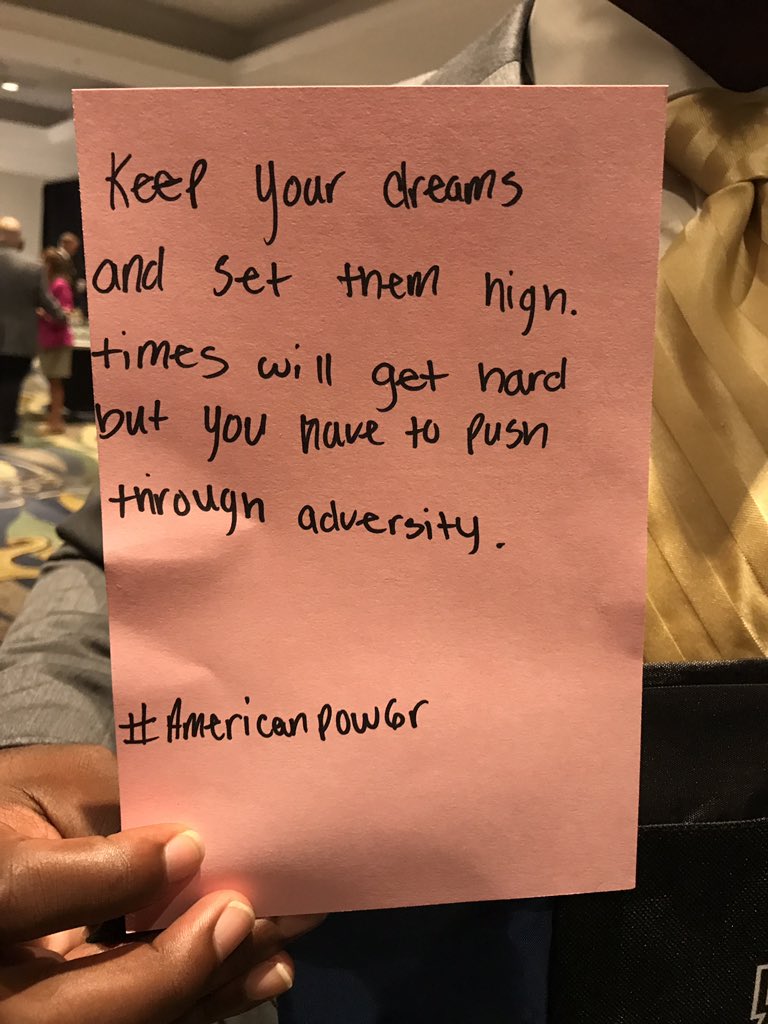 Keep your dreams
and set them high.
times will get hard
but you have to push
through adversity.
#Americanpow6r